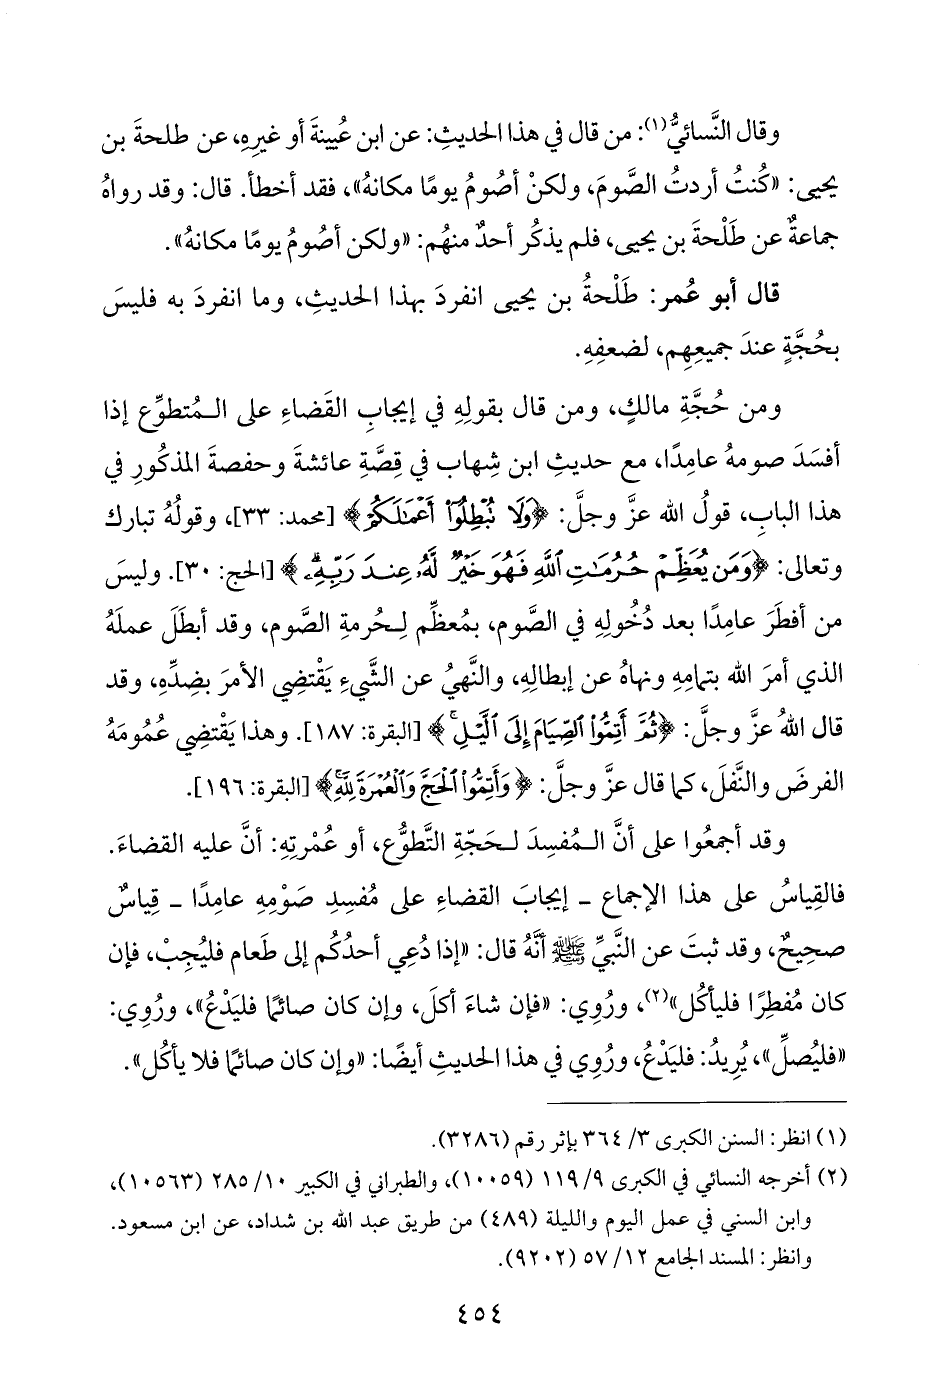 وقال النَّسائيُّ(١): من قال في هذا الحديثِ: عن ابن عُيينةَ أو غيرِهِ، عن طلحةَ بن
يحيى: «كُنتُ أردتُ الصَّومَ، ولكنْ أصُومُ يومًا مكانهُ»، فقد أخطأ. قال: وقد رواهُ
جماعةٌ عن طَلْحةَ بن يحيى، فلم يذكُر أحدٌ منهُم: «ولكن أصُومُ يومًا مكانهُ».
قال أبو عُمر: طَلْحةُ بن يحيى انفردَ بهذا الحديثِ، وما انفردَ به فليسَ
بحُجَّةٍ عندَ جميعِهِم، لضعفِهِ.
ومن حُجَّةِ مالكٍ، ومن قال بقولِهِ في إيجابِ القَضاءِ على المُتطوِّع إذا
أفسَدَ صومهُ عامِدًا، مع حديثِ ابن شِهاب في قِصَّةِ عائشةَ وحفصةَ المذكُورِ في
هذا البابِ، قولُ الله عزَّ وجلَّ: ﴿وَلَا نُبْطِلُوٓاْ أَعْمَٰلَكُمْ﴾ [محمد: ٣٣]، وقولُهُ تبارك
وتعالى: ﴿وَمَن يُعَظِّمْ حُرُمَٰتِ ٱللَّهِ فَهُوَ خَيْرٌ لَّهُۥ عِندَ رَبِّهِۦ﴾ [الحج: ٣٠]. وليسَ
من أفطَرَ عامِدًا بعد دُخُولِهِ في الصَّوم، بمُعظِّم لِحُرمةِ الصَّوم، وقد أبطَلَ عملَهُ
الذي أمرَ الله بتمامِهِ ونهاهُ عن إبطالِهِ، والنَّهيُ عن الشَّيءِ يَقْتضِي الأمرَ بضِدِّهِ، وقد
قال اللهُ عزَّ وجلَّ: ﴿ثُمَّ أَتِمُّواْ ٱلصِّيَامَ إِلَى ٱلَّيْلِ﴾ [البقرة: ١٨٧]. وهذا يَقْتضِي عُمُومَهُ
الفرضَ والنَّفلَ، كما قال عزَّ وجلَّ: ﴿وَأَتِمُّواْ ٱلْحَجَّ وَٱلْعُمْرَةَ لِلَّهِ﴾ [البقرة: ١٩٦].
وقد أجمعُوا على أنَّ المُفسِدَ لحَجّةِ التَّطوُّع، أو عُمْرتِهِ: أنَّ عليه القضاءَ.
فالقِياسُ على هذا الإجماع ـ إيجابَ القضاءِ على مُفسِدِ صَوْمِهِ عامِدًا ـ قِياسٌ
صحيحٌ، وقد ثبتَ عن النَّبيِّ ﷺ أنَّهُ قال: «إذا دُعِي أحدُكُم إلى طَعام فليُجِبْ، فإن
كان مُفطِرًا فليأكُل»(٢)، ورُوِي: «فإن شاءَ أكلَ، وإن كان صائمًا فليَدْعُ»، ورُوِي:
«فليُصلِّ»، يُرِيدُ: فليَدْعُ، ورُوِي في هذا الحديثِ أيضًا: «وإن كان صائمًا فلا يأكُل».
(١) انظر: السنن الكبرى ٣/ ٣٦٤ بإثر رقم (٣٢٨٦).
(٢) أخرجه النسائي في الكبرى ٩/ ١١٩ (١٠٠٥٩)، والطبراني في الكبير ١٠/ ٢٨٥ (١٠٥٦٣)،
وابن السني في عمل اليوم والليلة (٤٨٩) من طريق عبد الله بن شداد، عن ابن مسعود.
وانظر: المسند الجامع ١٢/ ٥٧ (٩٢٠٢).
٤٥٤